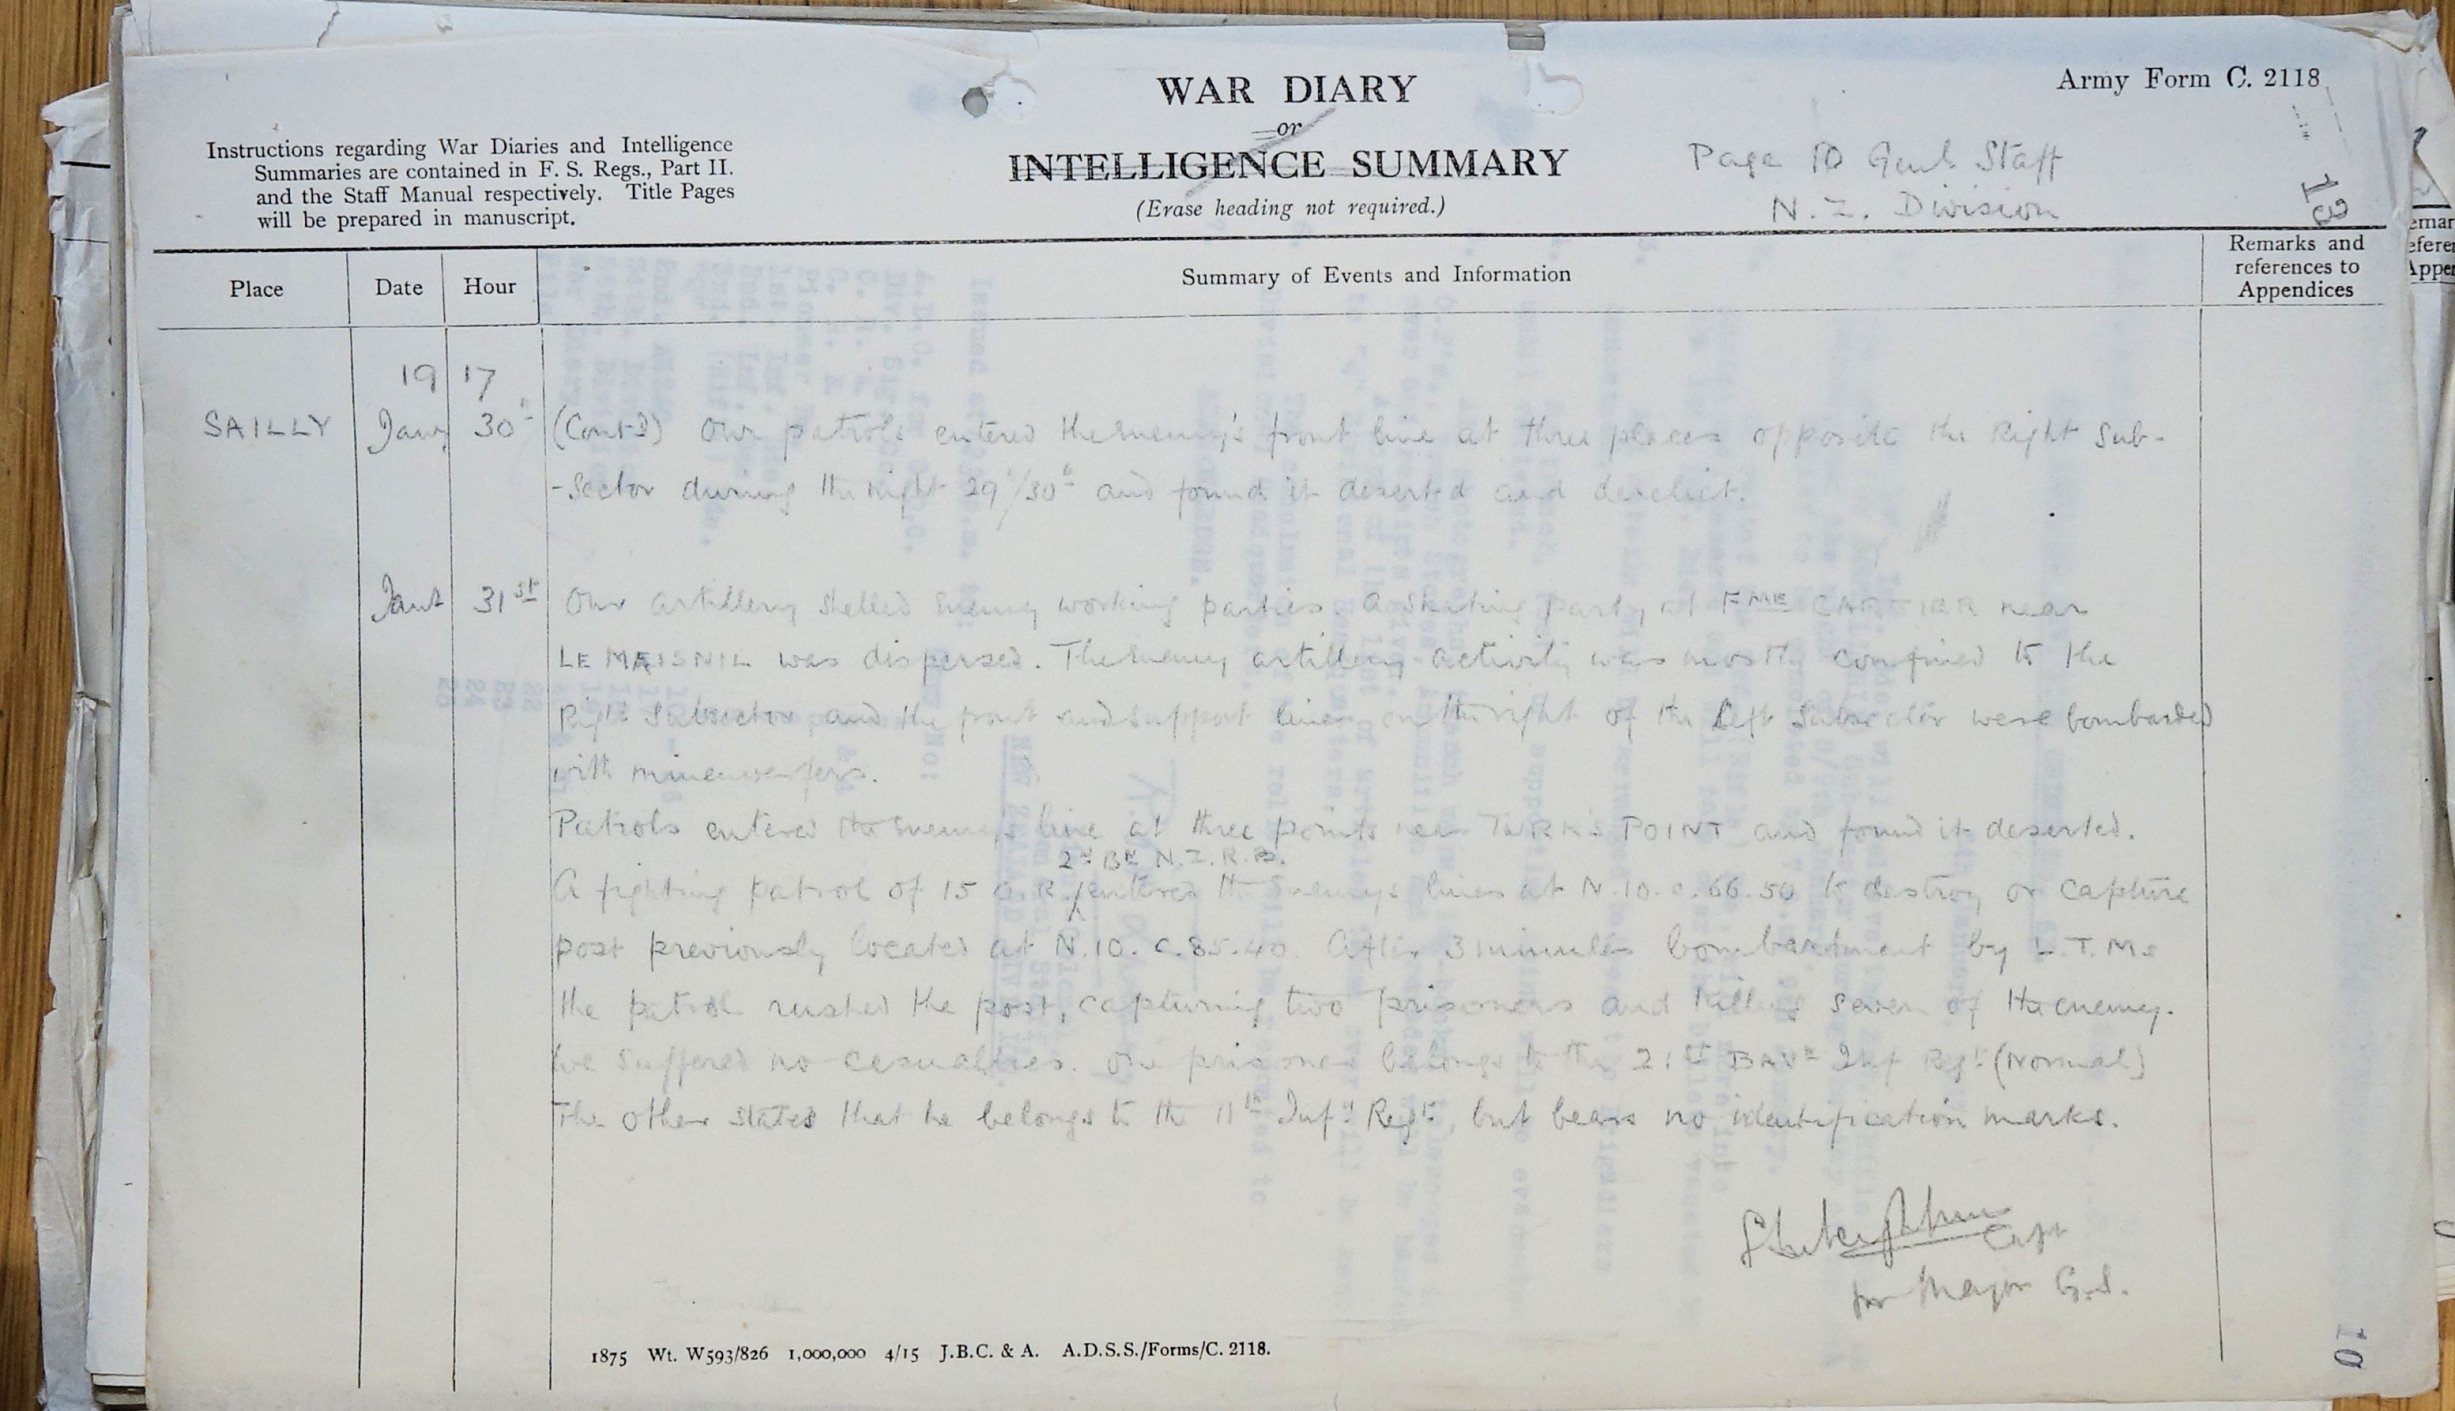 Army Form C. 2118
WAR DIARY
or
INTELLIGENCE SUMMARY
(Erase heading not required.)
Instructions regarding War Diaries and Intelligence
Summaries are contained in F. S. Regs., Part II.
and the Staff Manual respectively. Title Pages
will be prepared in manuscript.
Page 10 Genl Staff
N.Z. Division
13
Place
Date
Hour
Summary of Events and Information
Remarks and
references to
Appendices
1917
SAILLY Jany 30th (Contd) Our patrols entered the enemy's front line at three places opposite the Right Sub-
-Sector during the night 29th/30th and found it deserted and derelict.
31st Our artillery shelled enemy working parties. A skating party at FME CARTIER near
LE MAISNIL was dispersed. The enemy artillery activity was mostly confined to the
Right Subsector, and the front and support lines on the right of the Left Subsector were bombarded
with minenwerfers.
Patrols entered the enemy's line at three points near TURK'S POINT and found it deserted.
2nd Bn N.Z.R.B.
A fighting patrol of 15 O.R. entered the enemy's lines at N.10.c.66.50 to destroy or capture
post previously located at N.10.c.85.40. After 3 minutes bombardment by L.T.Ms
the patrol rushed the post, capturing two prisoners and killing seven of the enemy.
We suffered no casualties. One prisoner belongs to the 21st BAVn Inf Regt (Normal)
The other states that he belongs to the 11th Infy Regt, but bears no identification marks.
Capt
for Major G.S.
1875 Wt. W593/826 1,000,000 4/15 J.B.C. & A. A.D.S.S./Forms/C. 2118.
10